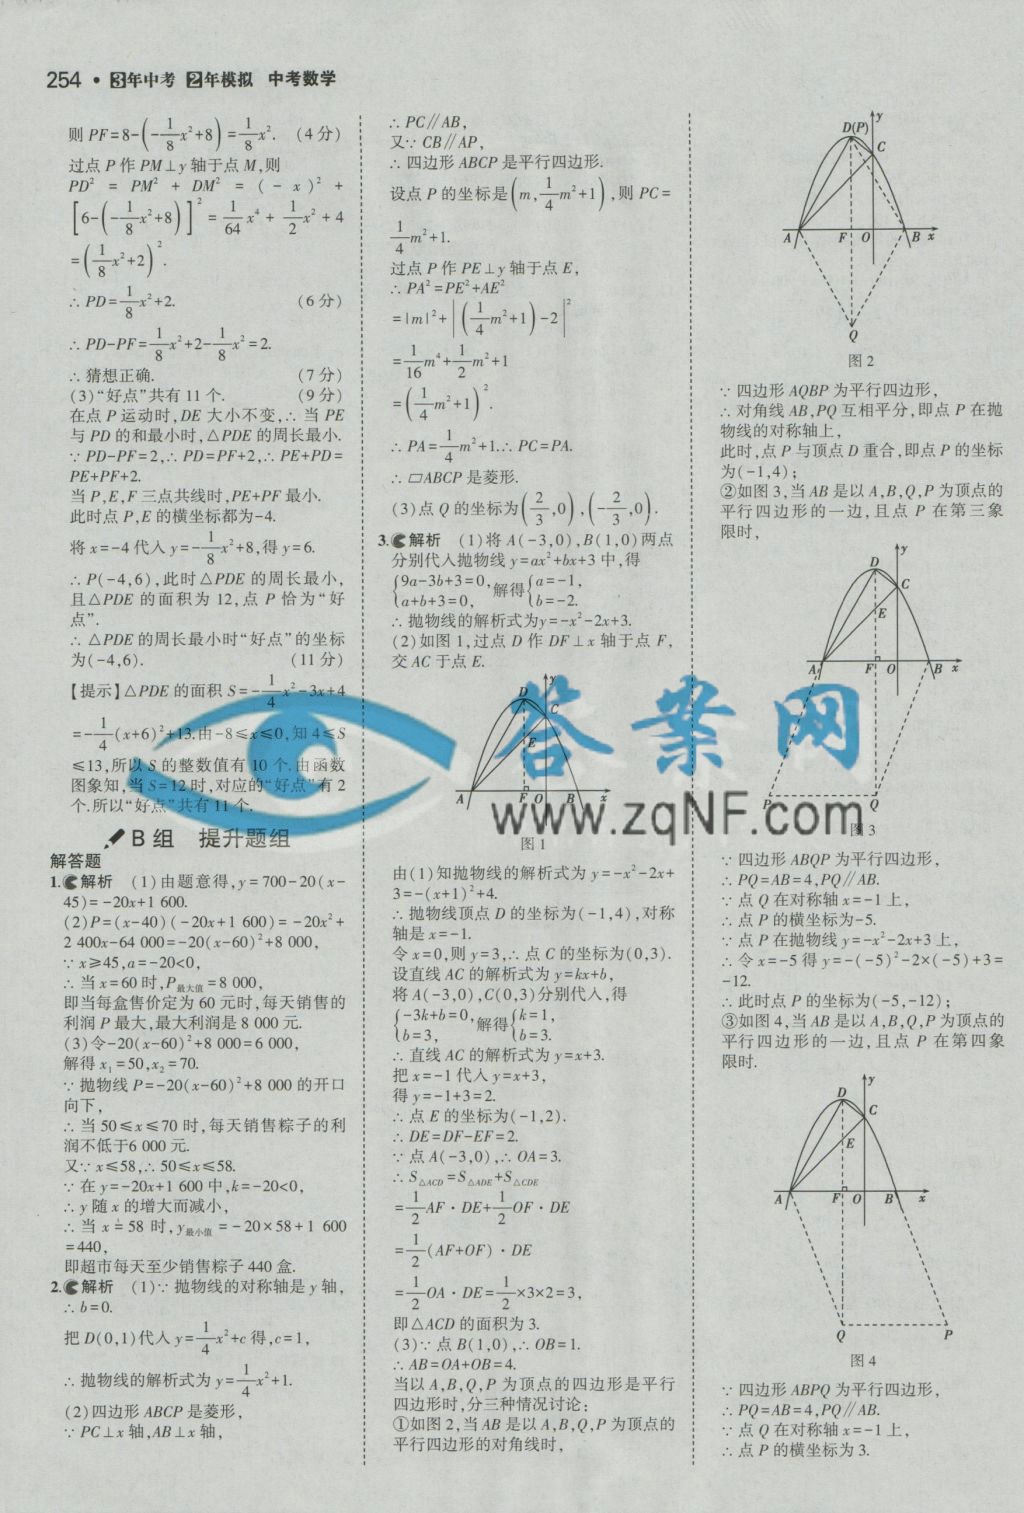 254 · 3年中考 2年模拟 中考数学
则 PF=8-(-1/8x²+8)=1/8x². (4分)
过点 P 作 PM⊥y 轴于点 M,则
PD² = PM² + DM² = (-x)² +
[6-(-1/8x²+8)]²=1/64x⁴+1/2x²+4
=(1/8x²+2)².
∴ PD=1/8x²+2. (6分)
∴ PD-PF=1/8x²+2-1/8x²=2.
∴ 猜想正确. (7分)
(3)“好点”共有 11 个. (9分)
在点 P 运动时,DE 大小不变,∴ 当 PE
与 PD 的和最小时,△PDE 的周长最小.
∵ PD-PF=2,∴ PD=PF+2,∴ PE+PD=
PE+PF+2.
当 P,E,F 三点共线时,PE+PF 最小.
此时点 P,E 的横坐标都为-4.
将 x=-4 代入 y=-1/8x²+8,得 y=6.
∴ P(-4,6),此时 △PDE 的周长最小,
且△PDE 的面积为 12,点 P 恰为“好
点”.
∴ △PDE 的周长最小时“好点”的坐标
为(-4,6). (11分)
【提示】△PDE 的面积 S=-1/4x²-3x+4
=-1/4(x+6)²+13.由-8≤x≤0,知 4≤S
≤13,所以 S 的整数值有 10 个.由函数
图象知,当 S=12 时,对应的“好点”有 2
个.所以“好点”共有 11 个.
B组 提升题组
解答题
1. 解析 (1)由题意得,y=700-20(x-
45)=-20x+1 600.
(2)P=(x-40)(-20x+1 600)=-20x²+
2 400x-64 000=-20(x-60)²+8 000,
∵ x≥45,a=-20<0,
∴ 当 x=60 时,P最大值=8 000,
即当每盒售价定为 60 元时,每天销售的
利润 P 最大,最大利润是 8 000 元.
(3)令-20(x-60)²+8 000=6 000,
解得 x₁=50,x₂=70.
∵ 抛物线 P=-20(x-60)²+8 000 的开口
向下,
∴ 当 50≤x≤70 时,每天销售粽子的利
润不低于6 000 元.
又∵ x≤58,∴ 50≤x≤58.
∵ 在 y=-20x+1 600 中,k=-20<0,
∴ y 随 x 的增大而减小,
∴ 当 x=58 时,y最小值=-20×58+1 600
=440,
即超市每天至少销售粽子 440 盒.
2. 解析 (1)∵ 抛物线的对称轴是 y 轴,
∴ b=0.
把 D(0,1)代入 y=1/4x²+c 得,c=1,
∴ 抛物线的解析式为 y=1/4x²+1.
(2)四边形 ABCP 是菱形,
∵ PC⊥x 轴,AB⊥x 轴,
∴ PC∥AB,
又∵ CB∥AP,
∴ 四边形 ABCP 是平行四边形.
设点 P 的坐标是(m,1/4m²+1),则 PC=
1/4m²+1.
过点 P 作 PE⊥y 轴于点 E,
∴ PA²=PE²+AE²
=|m|²+|(1/4m²+1)-2|²
=1/16m⁴+1/2m²+1
=(1/4m²+1)².
∴ PA=1/4m²+1.∴ PC=PA.
∴ ▱ABCP 是菱形.
(3)点 Q 的坐标为(2/3,0),(-2/3,0).
3. 解析 (1)将 A(-3,0),B(1,0)两点
分别代入抛物线 y=ax²+bx+3 中,得
{9a-3b+3=0, a+b+3=0, 解得{a=-1, b=-2.
∴ 抛物线的解析式为y=-x²-2x+3.
(2)如图 1,过点 D 作 DF⊥x 轴于点 F,
交 AC 于点 E.
D y C E A F O B x
图 1
由(1)知抛物线的解析式为 y=-x²-2x+
3=-(x+1)²+4.
∴ 抛物线顶点 D 的坐标为(-1,4),对称
轴是 x=-1.
令 x=0,则 y=3,∴ 点 C 的坐标为(0,3).
设直线 AC 的解析式为 y=kx+b,
将 A(-3,0),C(0,3)分别代入,得
{-3k+b=0, b=3, 解得{k=1, b=3.
∴ 直线 AC 的解析式为 y=x+3.
把 x=-1 代入 y=x+3,
得 y=-1+3=2.
∴ 点 E 的坐标为(-1,2).
∴ DE=DF-EF=2.
∵ 点 A(-3,0),∴ OA=3.
∴ S△ACD=S△ADE+S△CDE
=1/2AF·DE+1/2OF·DE
=1/2(AF+OF)·DE
=1/2OA·DE=1/2×3×2=3,
即△ACD 的面积为 3.
(3)∵ 点 B(1,0),∴ OB=1.
∴ AB=OA+OB=4.
当以 A,B,Q,P 为顶点的四边形是平行
四边形时,分三种情况讨论:
①如图 2,当 AB 是以 A,B,Q,P 为顶点的
平行四边形的对角线时,
D(P) y C A F O B x Q
图 2
∵ 四边形 AQBP 为平行四边形,
∴ 对角线 AB,PQ 互相平分,即点 P 在抛
物线的对称轴上,
此时,点 P 与顶点 D 重合,即点 P 的坐标
为(-1,4);
②如图 3,当 AB 是以 A,B,Q,P 为顶点的
平行四边形的一边,且点 P 在第三象
限时,
y D C E A F O B x P Q
图 3
∵ 四边形 ABQP 为平行四边形,
∴ PQ=AB=4,PQ∥AB.
∵ 点 Q 在对称轴 x=-1 上,
∴ 点 P 的横坐标为-5.
∵ 点 P 在抛物线 y=-x²-2x+3 上,
∴ 令 x=-5 得 y=-(-5)²-2×(-5)+3=
-12.
∴ 此时点 P 的坐标为(-5,-12);
③如图 4,当 AB 是以 A,B,Q,P 为顶点的
平行四边形的一边,且点 P 在第四象
限时.
y D C E A F O B x Q P
图 4
∵ 四边形 ABPQ 为平行四边形,
∴ PQ=AB=4,PQ∥AB.
∵ 点 Q 在对称轴 x=-1 上,
∴ 点 P 的横坐标为 3.
答案网
www.zqNF.com